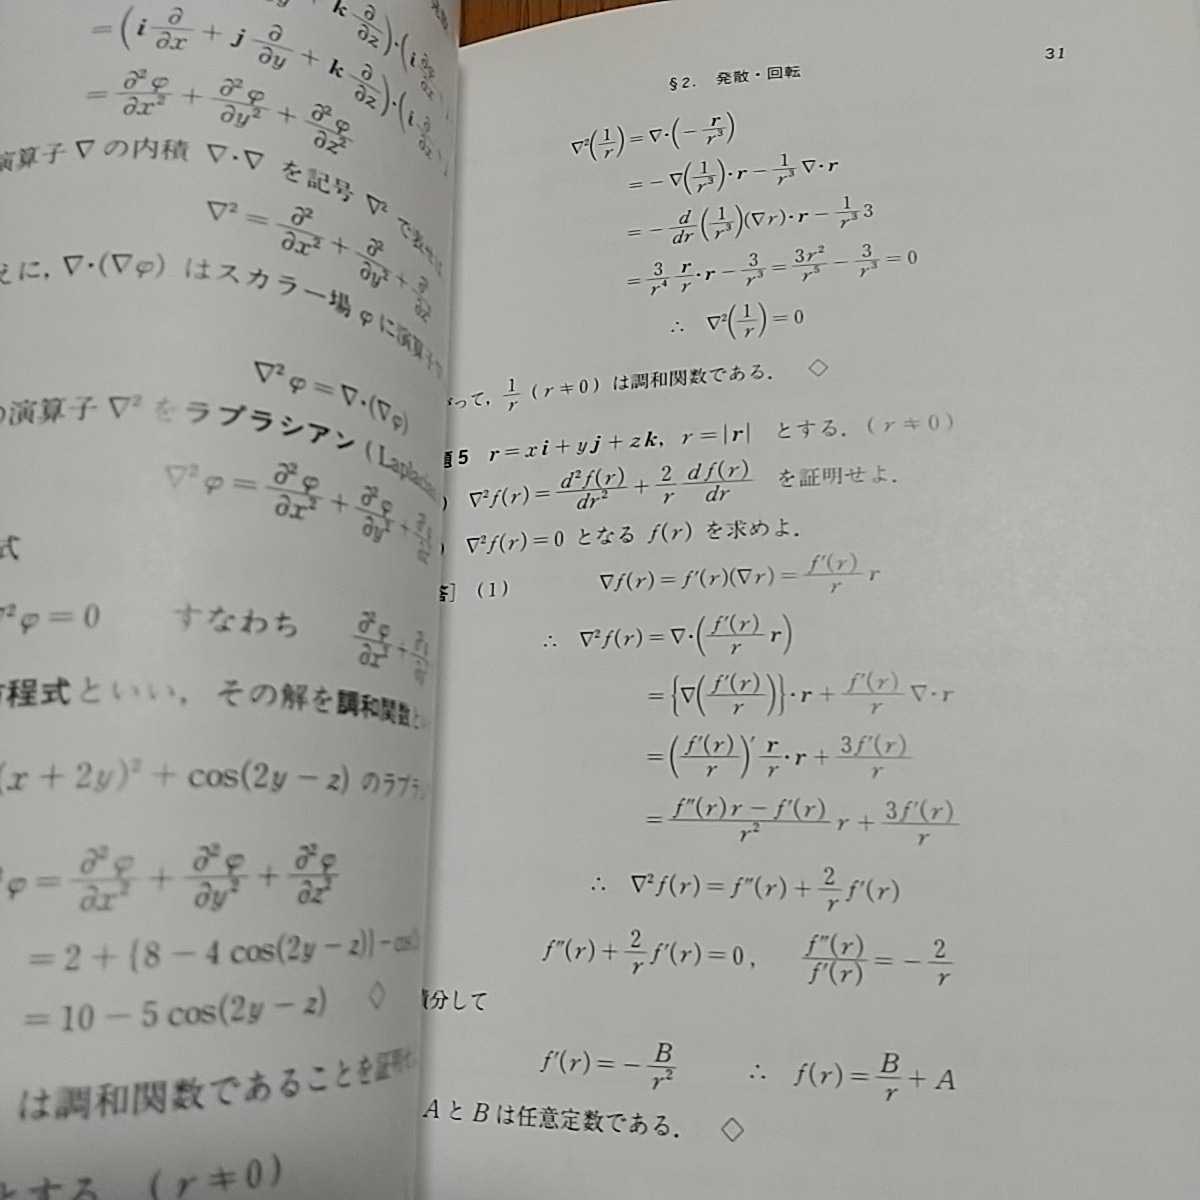 = (i ∂/∂x + j ∂/∂y + k ∂/∂z)·(i
= ∂²φ/∂x² + ∂²φ/∂y² + ∂²φ/∂z²
演算子 ∇ の内積 ∇·∇ を記号 ∇² で表せば
∇² = ∂²/∂x² + ∂²/∂y² +
えに, ∇·(∇φ) はスカラー場 φ に演算子
∇²φ = ∇·(∇φ)
の演算子 ∇² をラプラシアン (Laplacian
∇²φ = ∂²φ/∂x² + ∂²φ/∂y² +
式
∇²φ = 0 すなわち ∂²φ/∂x² +
方程式といい, その解を調和関数とい
(x + 2y)² + cos(2y − z) のラプラ
²φ = ∂²φ/∂x² + ∂²φ/∂y² + ∂²φ/∂z²
= 2 + {8 − 4 cos(2y − z)} − cos
= 10 − 5 cos(2y − z) ◇
は調和関数であることを証明せ
とする. (r ≠ 0)
§2. 発散・回転 31
∇²(1/r) = ∇·(− r/r³)
= − ∇(1/r³)·r − 1/r³ ∇·r
= − d/dr (1/r³)(∇r)·r − 1/r³ 3
= 3/r⁴ r/r·r − 3/r³ = 3r²/r⁵ − 3/r³ = 0
∴ ∇²(1/r) = 0
がって, 1/r (r ≠ 0) は調和関数である. ◇
題5 r = xi + yj + zk, r = |r| とする. (r ≠ 0)
) ∇²f(r) = d²f(r)/dr² + 2/r df(r)/dr を証明せよ.
) ∇²f(r) = 0 となる f(r) を求めよ.
答] (1) ∇f(r) = f′(r)(∇r) = f′(r)/r r
∴ ∇²f(r) = ∇·(f′(r)/r r)
= {∇(f′(r)/r)}·r + f′(r)/r ∇·r
= (f′(r)/r)′ r/r·r + 3f′(r)/r
= f″(r)r − f′(r)/r² r + 3f′(r)/r
∴ ∇²f(r) = f″(r) + 2/r f′(r)
f″(r) + 2/r f′(r) = 0, f″(r)/f′(r) = − 2/r
積分して
f′(r) = − B/r² ∴ f(r) = B/r + A
AとBは任意定数である. ◇